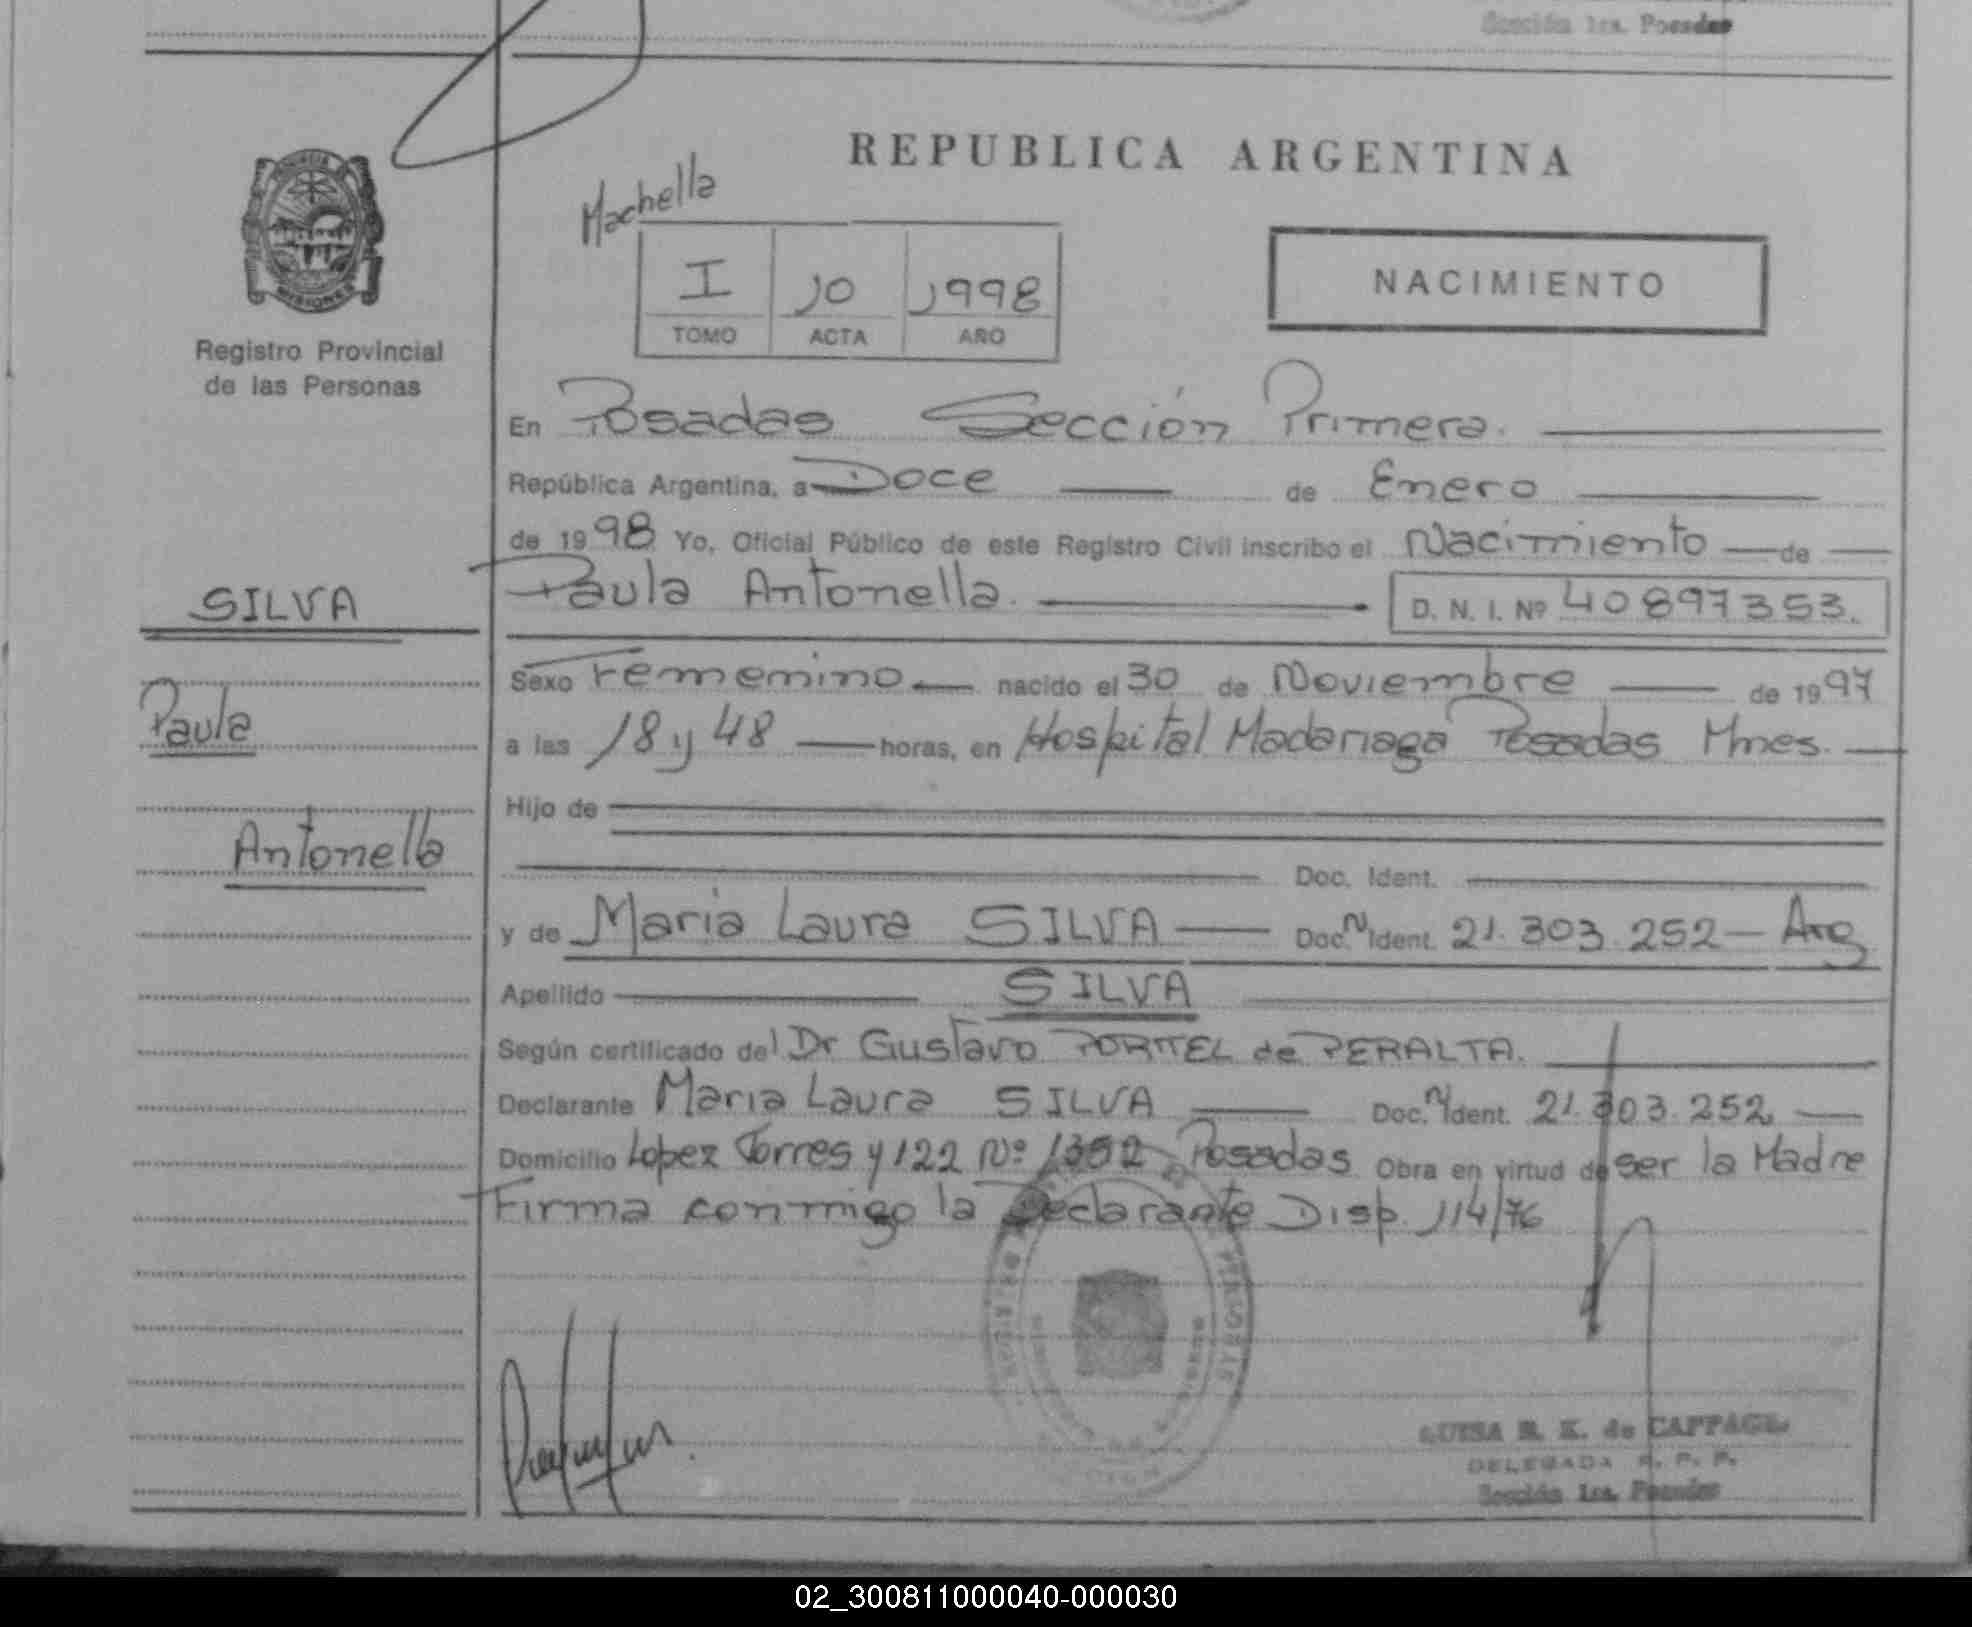 Sección 1ra. Posadas
REPUBLICA ARGENTINA
Machella
I 10 1998
TOMO ACTA AÑO
NACIMIENTO
MISIONES
Registro Provincial
de las Personas
En Posadas Sección Primera.
República Argentina, a Doce de Enero
de 1998 Yo, Oficial Público de este Registro Civil inscribo el Nacimiento de
SILVA
Paula Antonella. D. N. I. Nº 40897353.
Sexo Femenino nacido el 30 de Noviembre de 1997
Paula
a las 18 y 48 horas, en Hospital Madariaga Posadas Mnes.
Hijo de
Antonella
Doc. Ident.
y de Maria Laura SILVA Doc. N Ident. 21.303.252 - Arg
Apellido SILVA
Según certificado del Dr Gustavo PORTEL de PERALTA.
Declarante Maria Laura SILVA Doc. N Ident. 21.303.252
Domicilio Lopez Torres y 122 Nº 1352 Posadas Obra en virtud de ser la Madre
Firma conmigo la Declarante Disp. 114/76
LUISA R. K. de CAPPAGLI
DELEGADA R. P. P.
Sección 1ra. Posadas
02_300811000040-000030